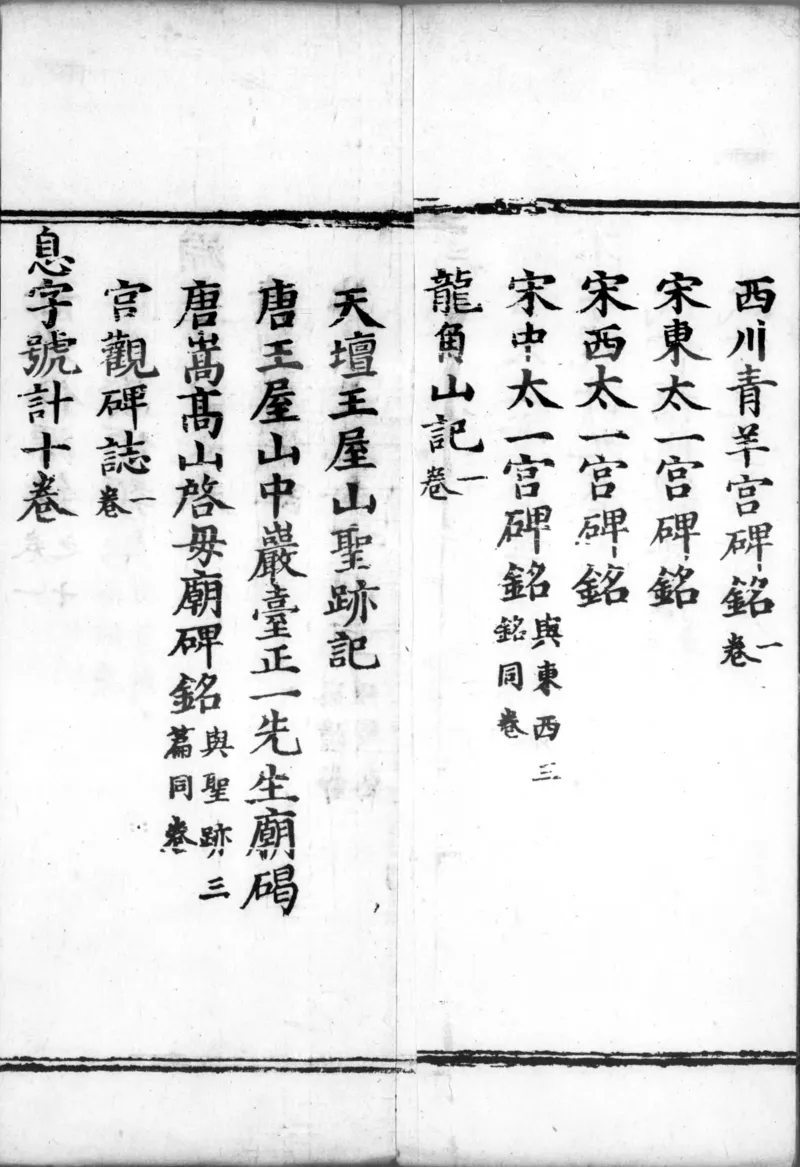 西川青羊宮碑銘一卷
宋東太一宮碑銘
宋西太一宮碑銘
宋中太一宮碑銘與東西三銘同卷
龍角山記一卷
天壇王屋山聖跡記
唐王屋山中巖臺正一先生廟碣
唐嵩高山啓毋廟碑銘與聖跡三篇同卷
宮觀碑誌一卷
息字號計十卷